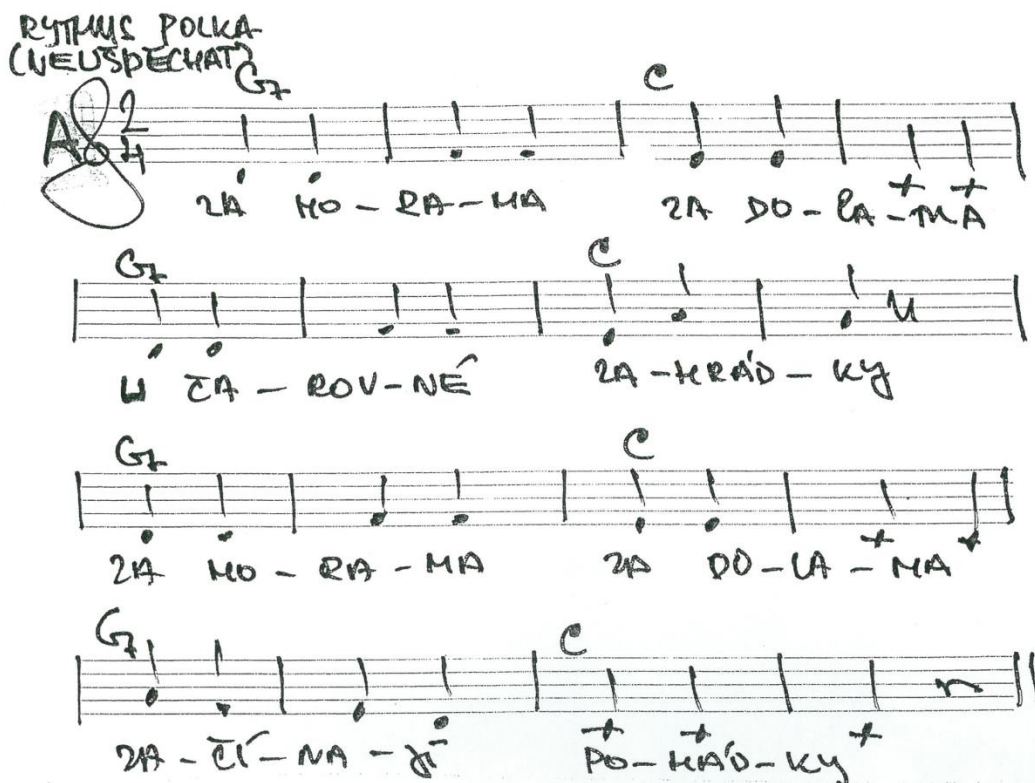 RYTHMUS POLKA
(NEUSPĚCHAT)
G7 C
A 2/4
ZA HO - RA - MA ZA DO - LA - MA
G7 C
Ú ČA - ROV - NÉ ZA - HRÁD - KY
G7 C
ZA HO - RA - MA ZA DO - LA - MA
G7 C
ZA - ČÍ - NA - JÍ PO - HÁD - KY